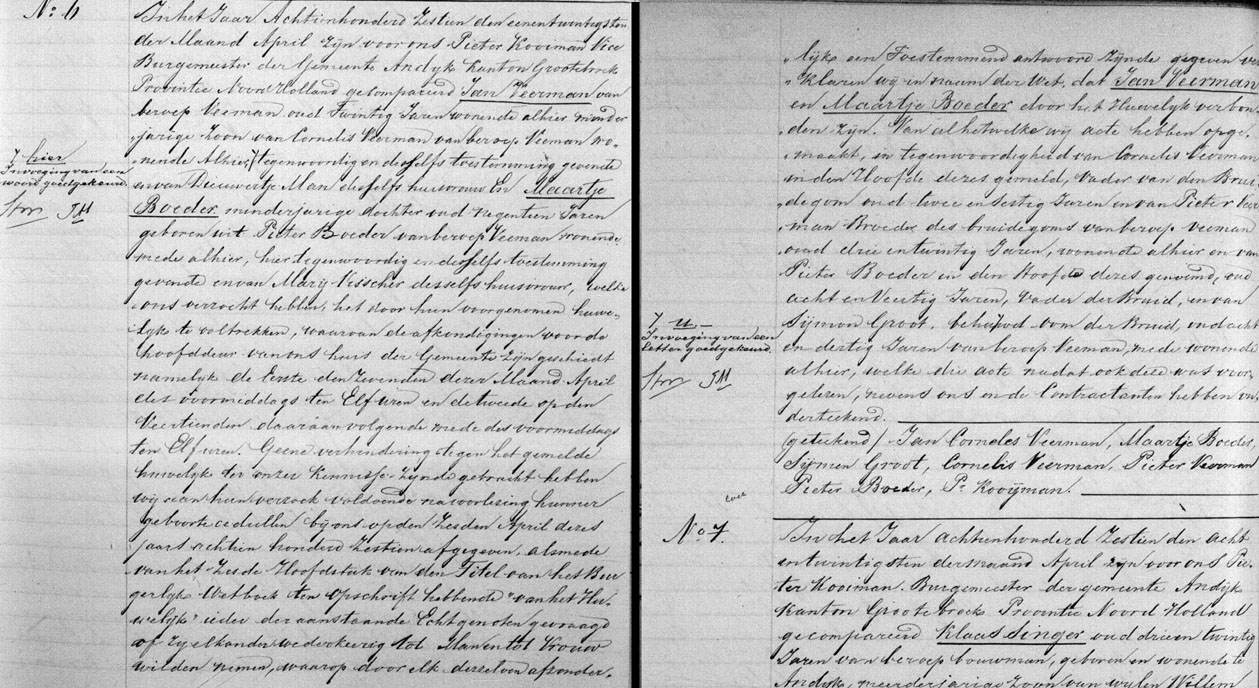 No: 6
In het Jaar Achttienhonderd Zestien den eenentwintigsten
der Maand April zijn voor ons Pieter Kooiman Vice
Burgemeester der Gemeente Andijk Kanton Grootebroek
Provintie Noord Holland gecompareerd Jan Veerman van
beroep Veeman oud Twintig Jaren wonende alhier minder
jarige Zoon van Cornelis Veerman van beroep Veeman wo-
nende Alhier, tegenwoordig en desselfs toestemming gevende
en van Dieuwertje Man desselfs huisvrouw En Maartje
Boeder minderjarige dochter oud negentien Jaren
geboren uit Pieter Boeder van beroep Veeman wonende
mede alhier, hier tegenwoordig en desselfs toestemming
gevende en van Marij Visscher desselfs huisvrouw, welke
ons verzocht hebben, het door hun voorgenomen huwe-
lijk te voltrekken, waarvan de afkondigingen voor de
hoofddeur van ons huis der Gemeente zijn geschiedt
namelijk de Eerste den Zevenden dezer Maand April
des voormiddags ten Elf uren en de tweede op den
Veertienden daaraan volgende mede des voormiddags
ten Elf uren. Geene verhindering tegen het gemelde
huwelijk ter onzer kennisse zijnde gebracht hebben
wij aan hun verzoek voldoende na voorlesing hunner
geboorte cedullen bij ons op den Zesden April dezes
jaars achtien honderd Zestien afgegeven, alsmede
van het Zesde Hoofdstuk van den Titel van het Bur
gerlijk Wetboek ten opschrift hebbende "van het Hu-
welijk" ieder der aanstaande Echtgenoten gevraagd
of zij elkander wederkeerig tot Man en tot Vrouw
wilden nemen, waarop door elk derzelven afzonder-
hier
Invoeging van een
woord goedgekeurd
lijk een Toestemmend antwoord zijnde gegeven ver
klaren wij in naam der Wet, dat Jan Veerman
en Maartje Boeder door het Huwelijk verbon
den zijn. Van al hetwelke wij acte hebben opge
maakt, in tegenwoordigheid van Cornelis Veerman
in den Hoofde dezes gemeld, vader van den Brui
degom oud twee en sestig Jaren en van Pieter Veer
man Broeder des bruidegoms van beroep veeman
oud drie en twintig Jaren, wonende alhier en van
Pieter Boeder in den Hoofde dezes genoemd, oud
acht en Veertig Jaren, vader der Bruid, en van
Sijmon Groot, behuwd oom der Bruid, oud acht
en dertig Jaren van beroep Veeman, mede wonende
alhier, welke die acte nadat ook deze was voor
gelezen, nevens ons en de Contractanten hebben on
derteekend.
(geteekend) Jan Corneles Veerman, Maartje Boeder,
Sijmen Groot, Cornelis Veerman, Pieter Veerman
Pieter Boeder, Pr. Kooijman.
u
Invoeging van een
letter goedgekeurd
No 7.
In het Jaar achttienhonderd Zestien den acht
entwintigsten der maand April zijn voor ons Pie-
ter Kooiman Burgemeester der gemeente Andijk
Kanton Grootebroek Provintie Noord Holland
gecompareerd Klaas Singer oud drieen twintig
Jaren van beroep bouwman, geboren en wonende te
Andijk, meerderjarige Zoon van wijlen Willem